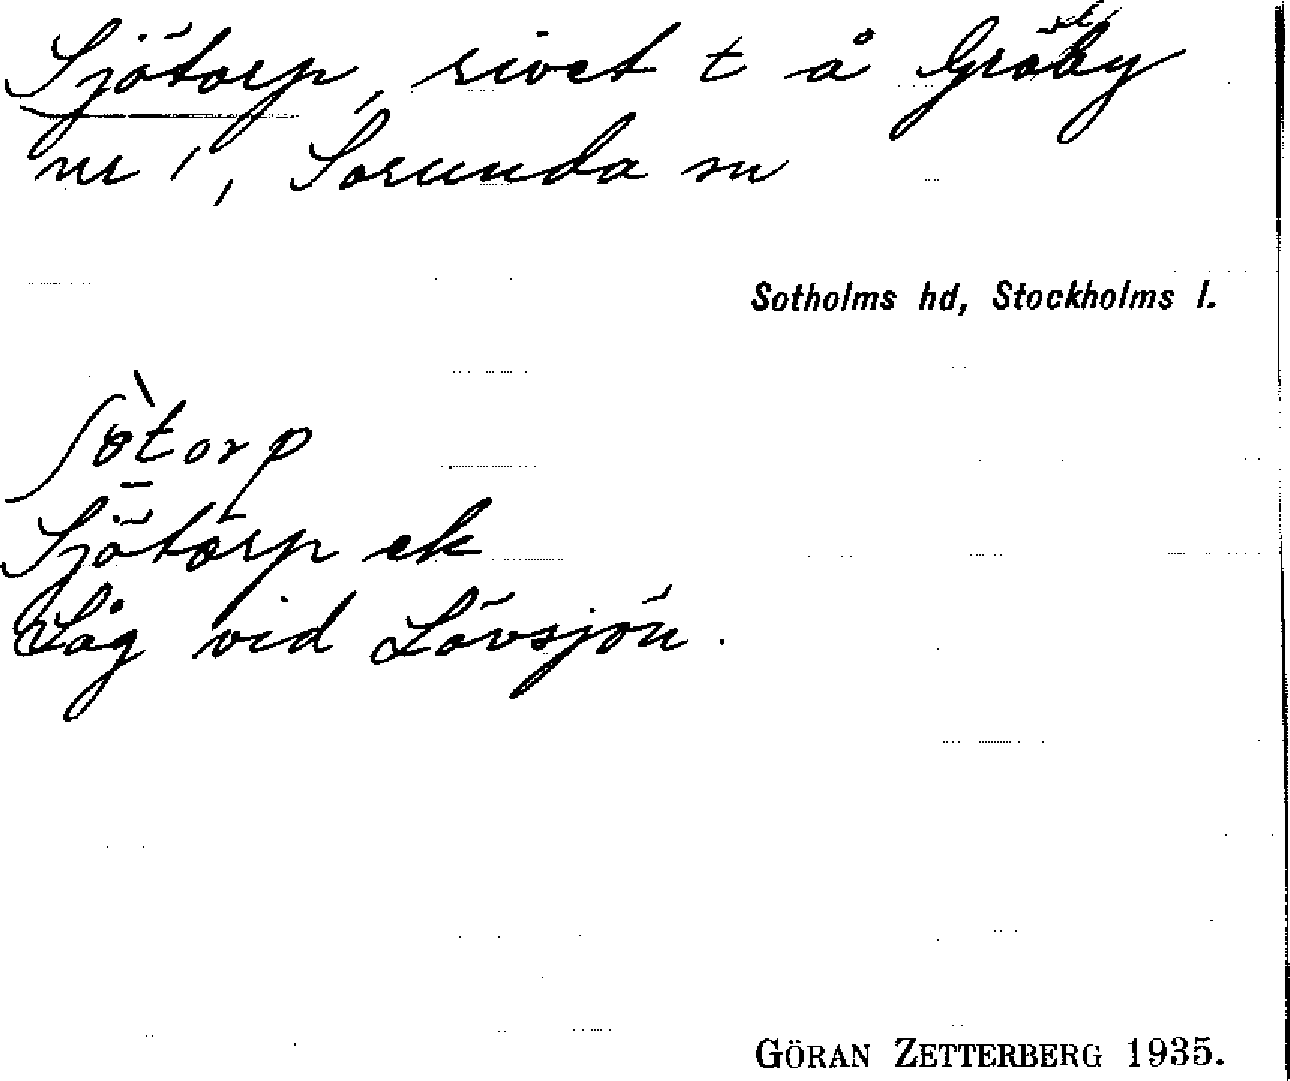 Sjötorp, rivet t å Gröby
nr 1, Sorunda sn
Sotholms hd, Stockholms l.
ʃö̀torp
Sjötorp ek
Låg vid Lövsjön.
GÖRAN ZETTERBERG 1935.